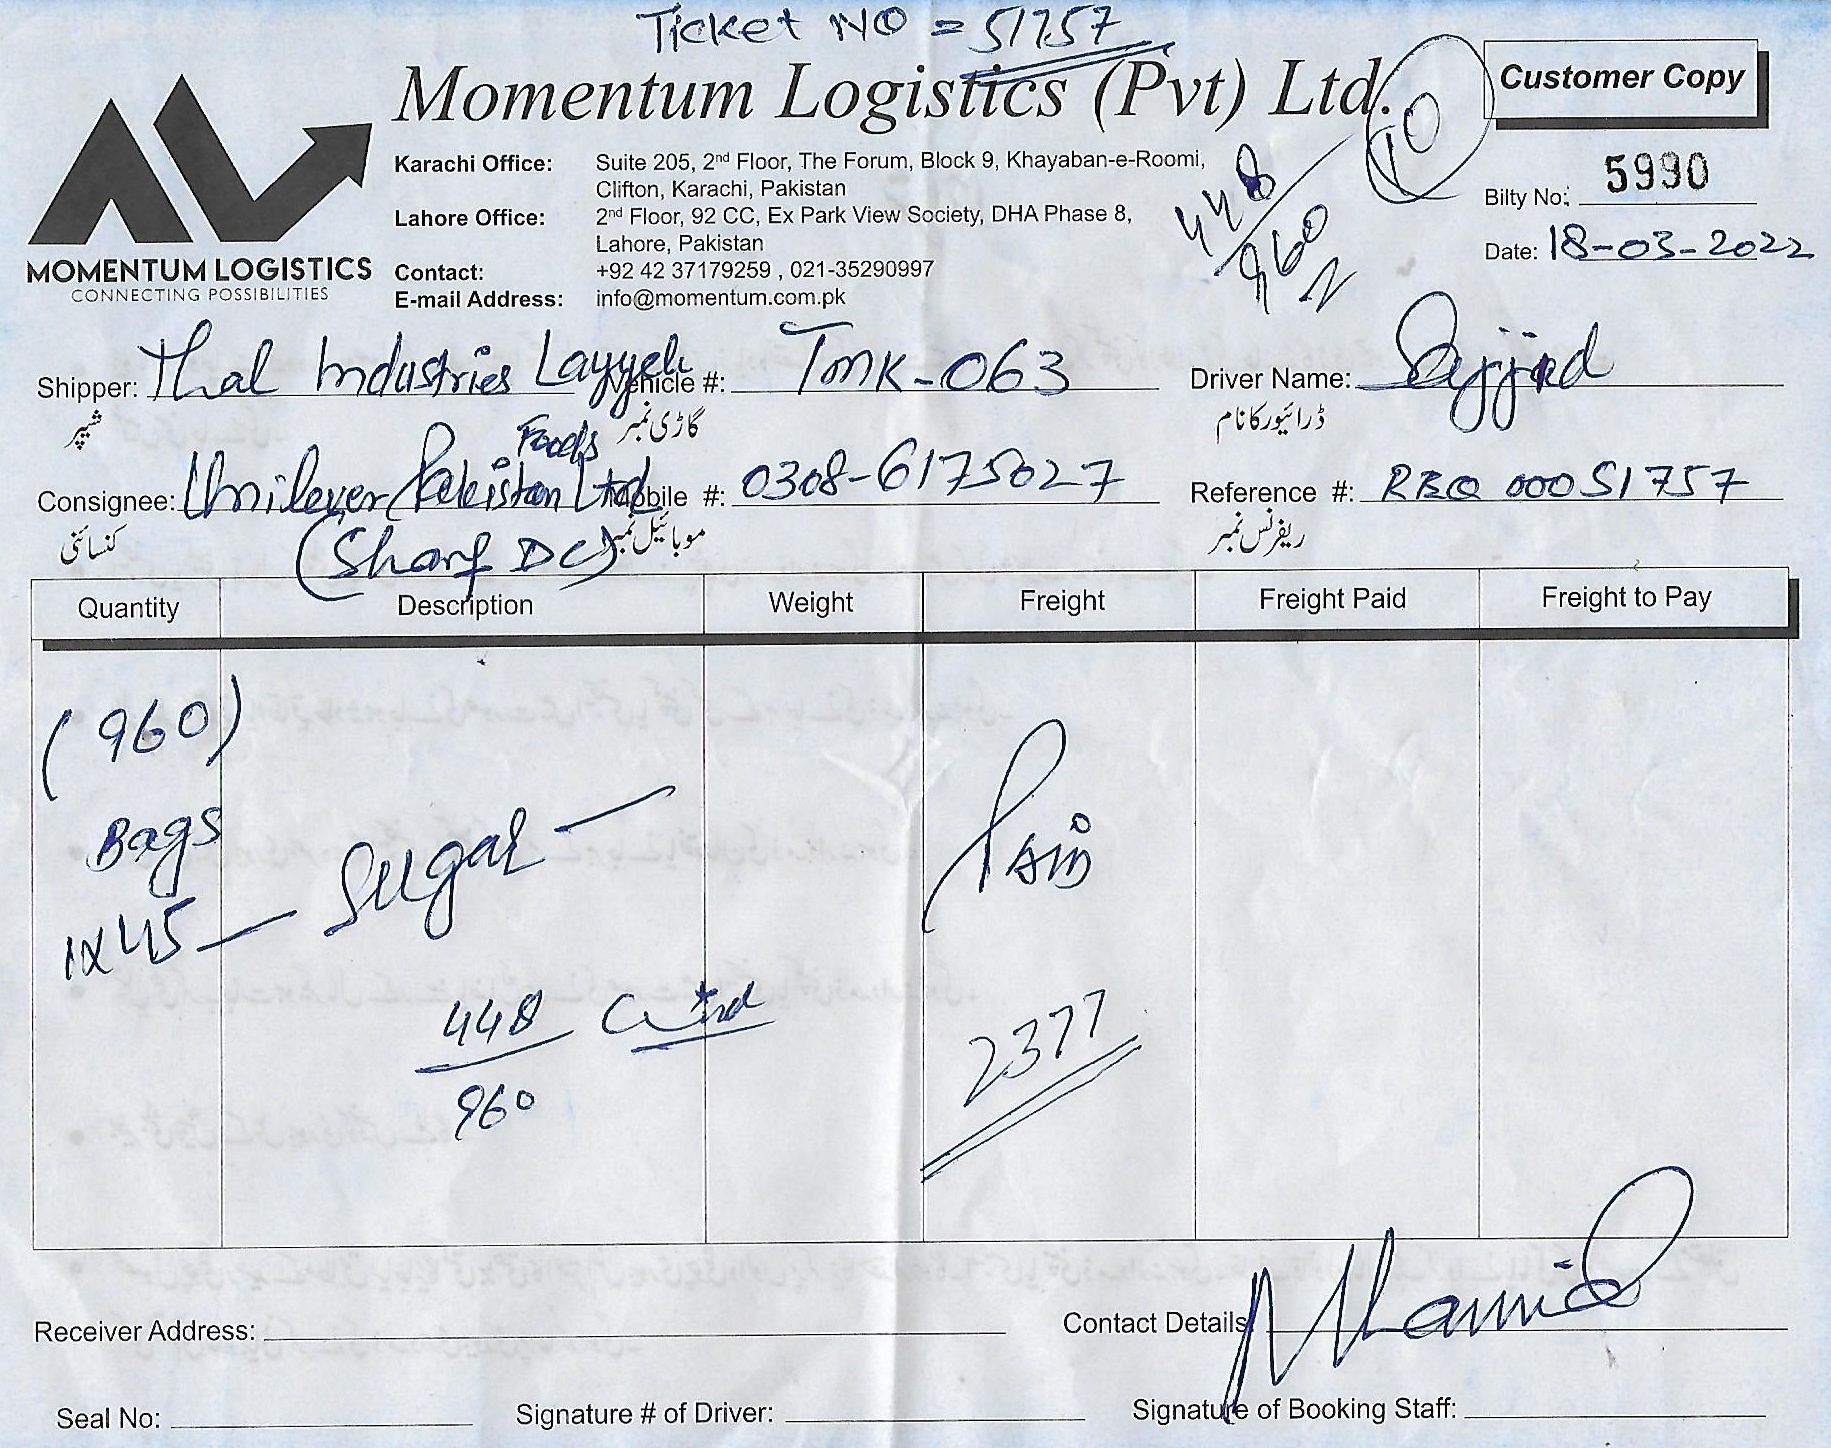 Ticket NO = 51757
Momentum Logistics (Pvt) Ltd.
Customer Copy
10
448
960
MOMENTUM LOGISTICS
CONNECTING POSSIBILITIES
Karachi Office: Suite 205, 2nd Floor, The Forum, Block 9, Khayaban-e-Roomi,
Clifton, Karachi, Pakistan
Lahore Office: 2nd Floor, 92 CC, Ex Park View Society, DHA Phase 8,
Lahore, Pakistan
Contact: +92 42 37179259 , 021-35290997
E-mail Address: info@momentum.com.pk
Bilty No: 5990
Date: 18-03-2022
Shipper: Thal Industries Layyah Vehicle #: TMK-063 Driver Name: Sajjad
شیپر گاڑی نمبر ڈرائیور کا نام
Foods
Consignee: Unilever Pakistan Ltd Mobile #: 0308-6175027 Reference #: RBO 00051757
کنسائنی موبائیل نمبر ریفرنس نمبر
(Sharf DC)
Quantity Description Weight Freight Freight Paid Freight to Pay
(960)
Bags
1x45 — Sugar —
Paid
448
960
2377
Receiver Address: Contact Details
Seal No: Signature # of Driver: Signature of Booking Staff: